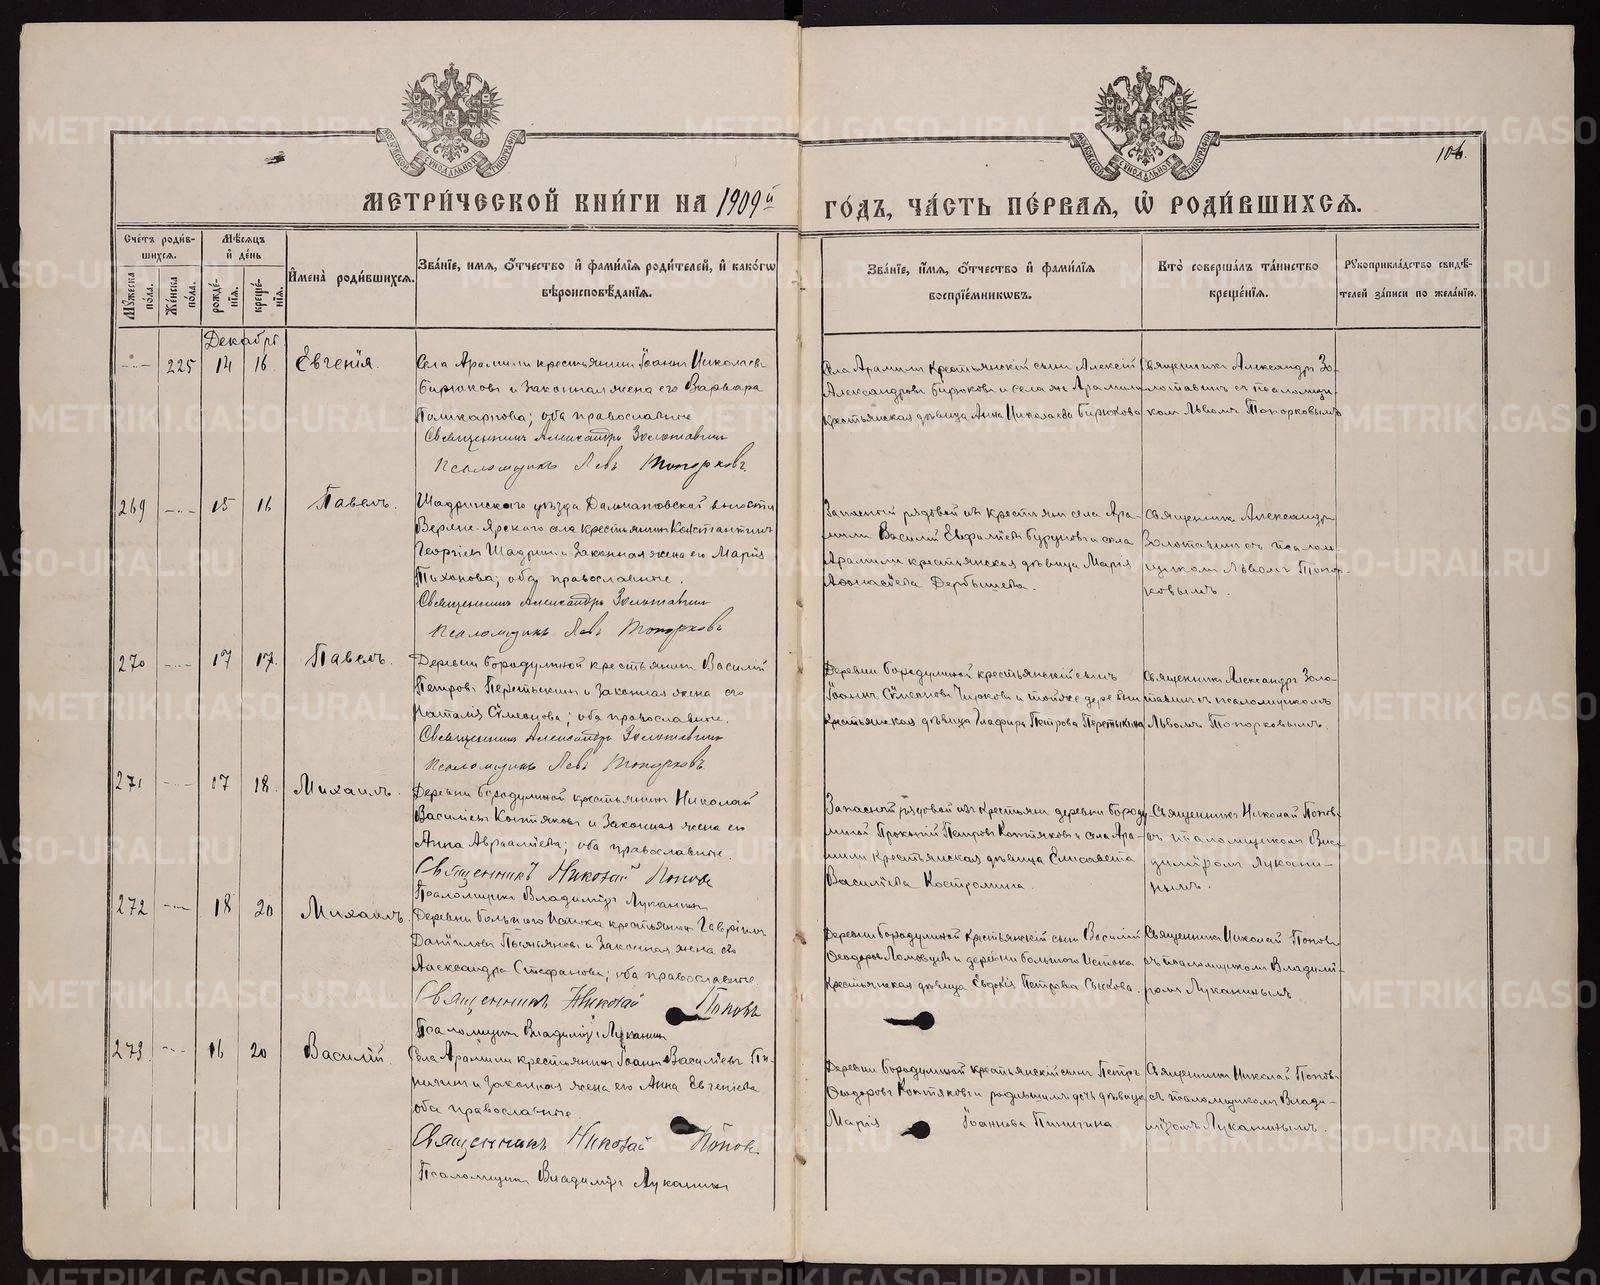 106.
МЕТРИ́ЧЕСКОЙ КНИ́ГИ НА 1909й ГО́ДЪ, ЧА́СТЬ ПЕ́РВАЯ, Ѽ РОДИ́ВШИХСѦ.
Счетъ роди́в-
шихсѧ.
Мѣ́сѧцъ
и҆ де́нь
Мꙋжеска по́ла.
Же́нска по́ла.
рожде́-нїѧ.
креще́-нїѧ.
И҆мена̀ роди́вшихсѧ.
Зва́нїе, и҆мѧ, ѻ҆́тчество и҆ фами́лїѧ роди́телей, и҆ како́гѡ
вѣроисповѣ́данїѧ.
Зва́нїе, и҆́мѧ, ѻ҆́тчество и҆ фами́лїѧ
воспрїе́мникѡвъ.
Кто̀ соверша́лъ та́инство
креще́нїѧ.
Рꙋкоприкла́дство свидѣ́-
телей за́писи по жела́нїю.
Декабрь
225 14 16 Евгенія.
Села Арамили крестьянинъ Іоаннъ Николаевъ
Бирюковъ и законная жена его Варвара
Поликарпова; оба православные
Священникъ Александръ Золотавинъ
Псаломщикъ Левъ Топорковъ
Села Арамили крестьянскій сынъ Алексій
Александровъ Бирюковъ и села же Арамили
крестьянская дѣвица Анна Николаева Бирюкова
Священникъ Александръ Зо-
лотавинъ съ псаломщи-
комъ Львомъ Топорковымъ
269 15 16 Павелъ.
Шадринскаго уѣзда Далматовской волости
Верхне-Ярскаго села крестьянинъ Константинъ
Георгіевъ Шадринъ и законная жена его Марія
Тихонова; оба православные.
Священникъ Александръ Золотавинъ
Псаломщикъ Левъ Топорковъ
Запасный рядовой изъ крестьянъ села Ара-
мили Василій Евфиміевъ Бурундов и села
Арамили крестьянская дѣвица Марія
Аѳонасіева Дербышева.
Священникъ Александръ
Золотавинъ съ псалом-
щикомъ Львомъ Топор-
ковымъ.
270 17 17. Павелъ.
Деревни Бородулиной крестьянинъ Василій
Петровъ Перетыкинъ и законная жена его
Наталія Сѵмеонова; оба православные.
Священникъ Александръ Золотавинъ
Псаломщикъ Левъ Топорковъ
Деревни Бородулиной крестьянскій сынъ
Іоаннъ Сѵмеоновъ Чирковъ и тойже деревни
крестьянская дѣвица Глафира Петрова Перетыкина
Священникъ Александръ Золо-
тавинъ съ псаломщикомъ
Львомъ Топорковымъ.
271 17 18. Михаилъ.
Деревни Бородулиной крестьянинъ Николай
Василіевъ Коктяковъ и законная жена его
Анна Авраамiева; оба православные.
Священникъ Николай Поповъ
Псаломщикъ Владиміръ Луканинъ
Запасный рядовой изъ крестьянъ деревни Бороду-
линой Прокопій Петровъ Коктяковъ и села Ара-
мили крестьянская дѣвица Елисавета
Василіева Костромина.
Священникъ Николай Поповъ
съ псаломщикомъ Вла-
диміромъ Лукани-
нымъ.
272 18 20 Михаилъ.
Деревни Большого Истока крестьянинъ Гавріилъ
Даніиловъ и законная жена его
Александра Стефанова; оба православные.
Священникъ Николай Поповъ
Псаломщикъ Владиміръ Луканинъ
Деревни Бородулиной крестьянскій сынъ Василій
Ѳеодоровъ и деревни Большого Истока
крестьянская дѣвица Евдокія Петрова Сыскова.
Священникъ Николай Поповъ
съ псаломщикомъ Владимі-
ромъ Луканинымъ
273. 16 20 Василій.
Села Арамили крестьянинъ Іоаннъ Василіевъ Пи-
нигинъ и законная жена его Анна Евгеніева
оба православные.
Священникъ Николай Поповъ
Псаломщикъ Владиміръ Луканинъ
Деревни Бородулиной крестьянскій сынъ Петръ
Ѳеодоровъ Коктяковъ и родившимъ дочь дѣвица
Марія Іоаннова Пинигина
Священникъ Николай Поповъ
съ псаломщикомъ Влади-
міромъ Луканинымъ.